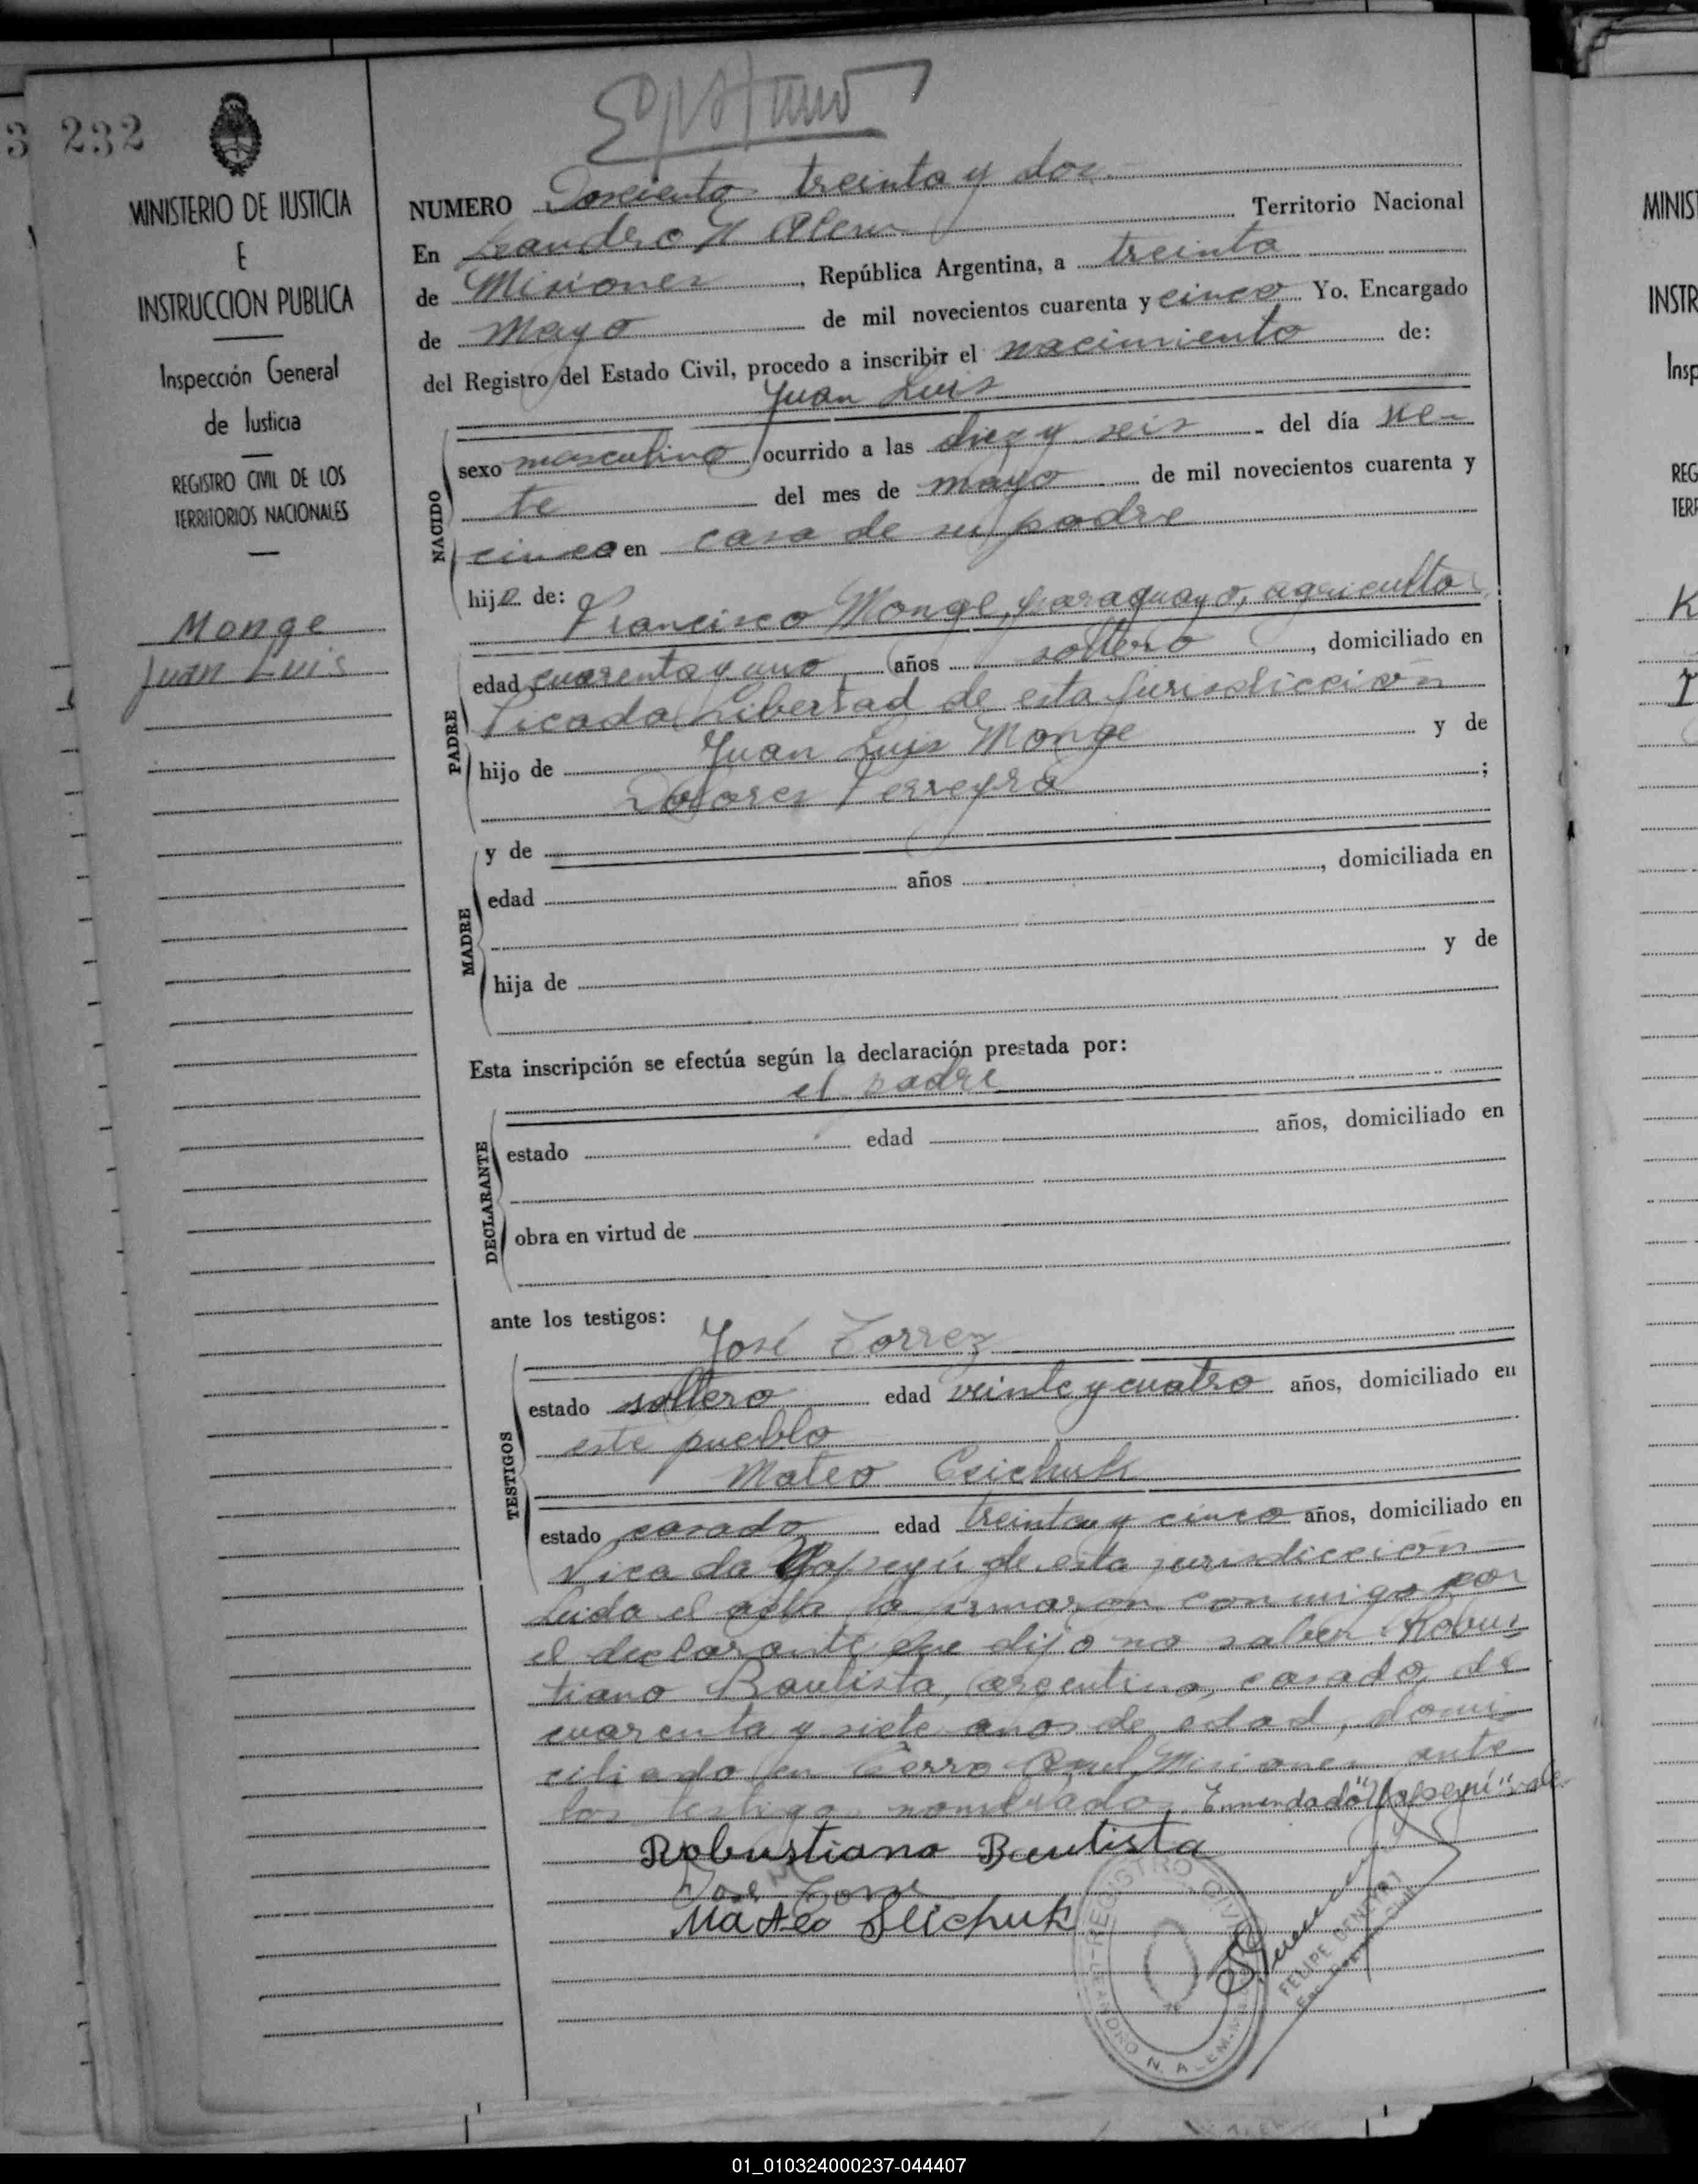 3 232
MINISTERIO DE JUSTICIA
E
INSTRUCCION PUBLICA
Inspección General
de Justicia
REGISTRO CIVIL DE LOS
TERRITORIOS NACIONALES
Monge
Juan Luis
NUMERO Doscientos treinta y dos
En Leandro N Alem Territorio Nacional
de Misiones, República Argentina, a treinta
de Mayo de mil novecientos cuarenta y cinco Yo, Encargado
del Registro del Estado Civil, procedo a inscribir el nacimiento de:
Juan Luis
NACIDO
sexo masculino ocurrido a las diez y seis del día
te del mes de mayo de mil novecientos cuarenta y
cinco en casa de su padre
hijo de:
Francisco Monge, paraguayo, agricultor
PADRE
edad cuarenta y uno años soltero, domiciliado en
Picada Libertad de esta Jurisdiccion
hijo de Juan Luis Monge y de
Dolores Ferreyra;
y de
MADRE
edad años, domiciliada en
hija de y de
Esta inscripción se efectúa según la declaración prestada por:
el padre
DECLARANTE
estado edad años, domiciliado en
obra en virtud de
ante los testigos:
José Torrez
TESTIGOS
estado soltero edad veinte y cuatro años, domiciliado en
este pueblo
Mateo
estado casado edad treinta y cinco años, domiciliado en
Picada Yapeyú de esta jurisdiccion
Leida el acta la firmaron conmigo por
el declarante que dijo no saber Robus
tiano Bautista, argentino, casado, de
cuarenta y siete años de edad, domi
ciliado en Cerro Azul Misiones ante
los testigos nombrados. Enmendado "Yapeyú" vale
Robustiano Bautista
Jose Torre
Mateo
REGISTRO CIVIL
LEANDRO N. ALEM
FELIPE
Enc. Registro Civil
MINIS
INSTR
Insp
REG
TERR
K
01_010324000237-044407